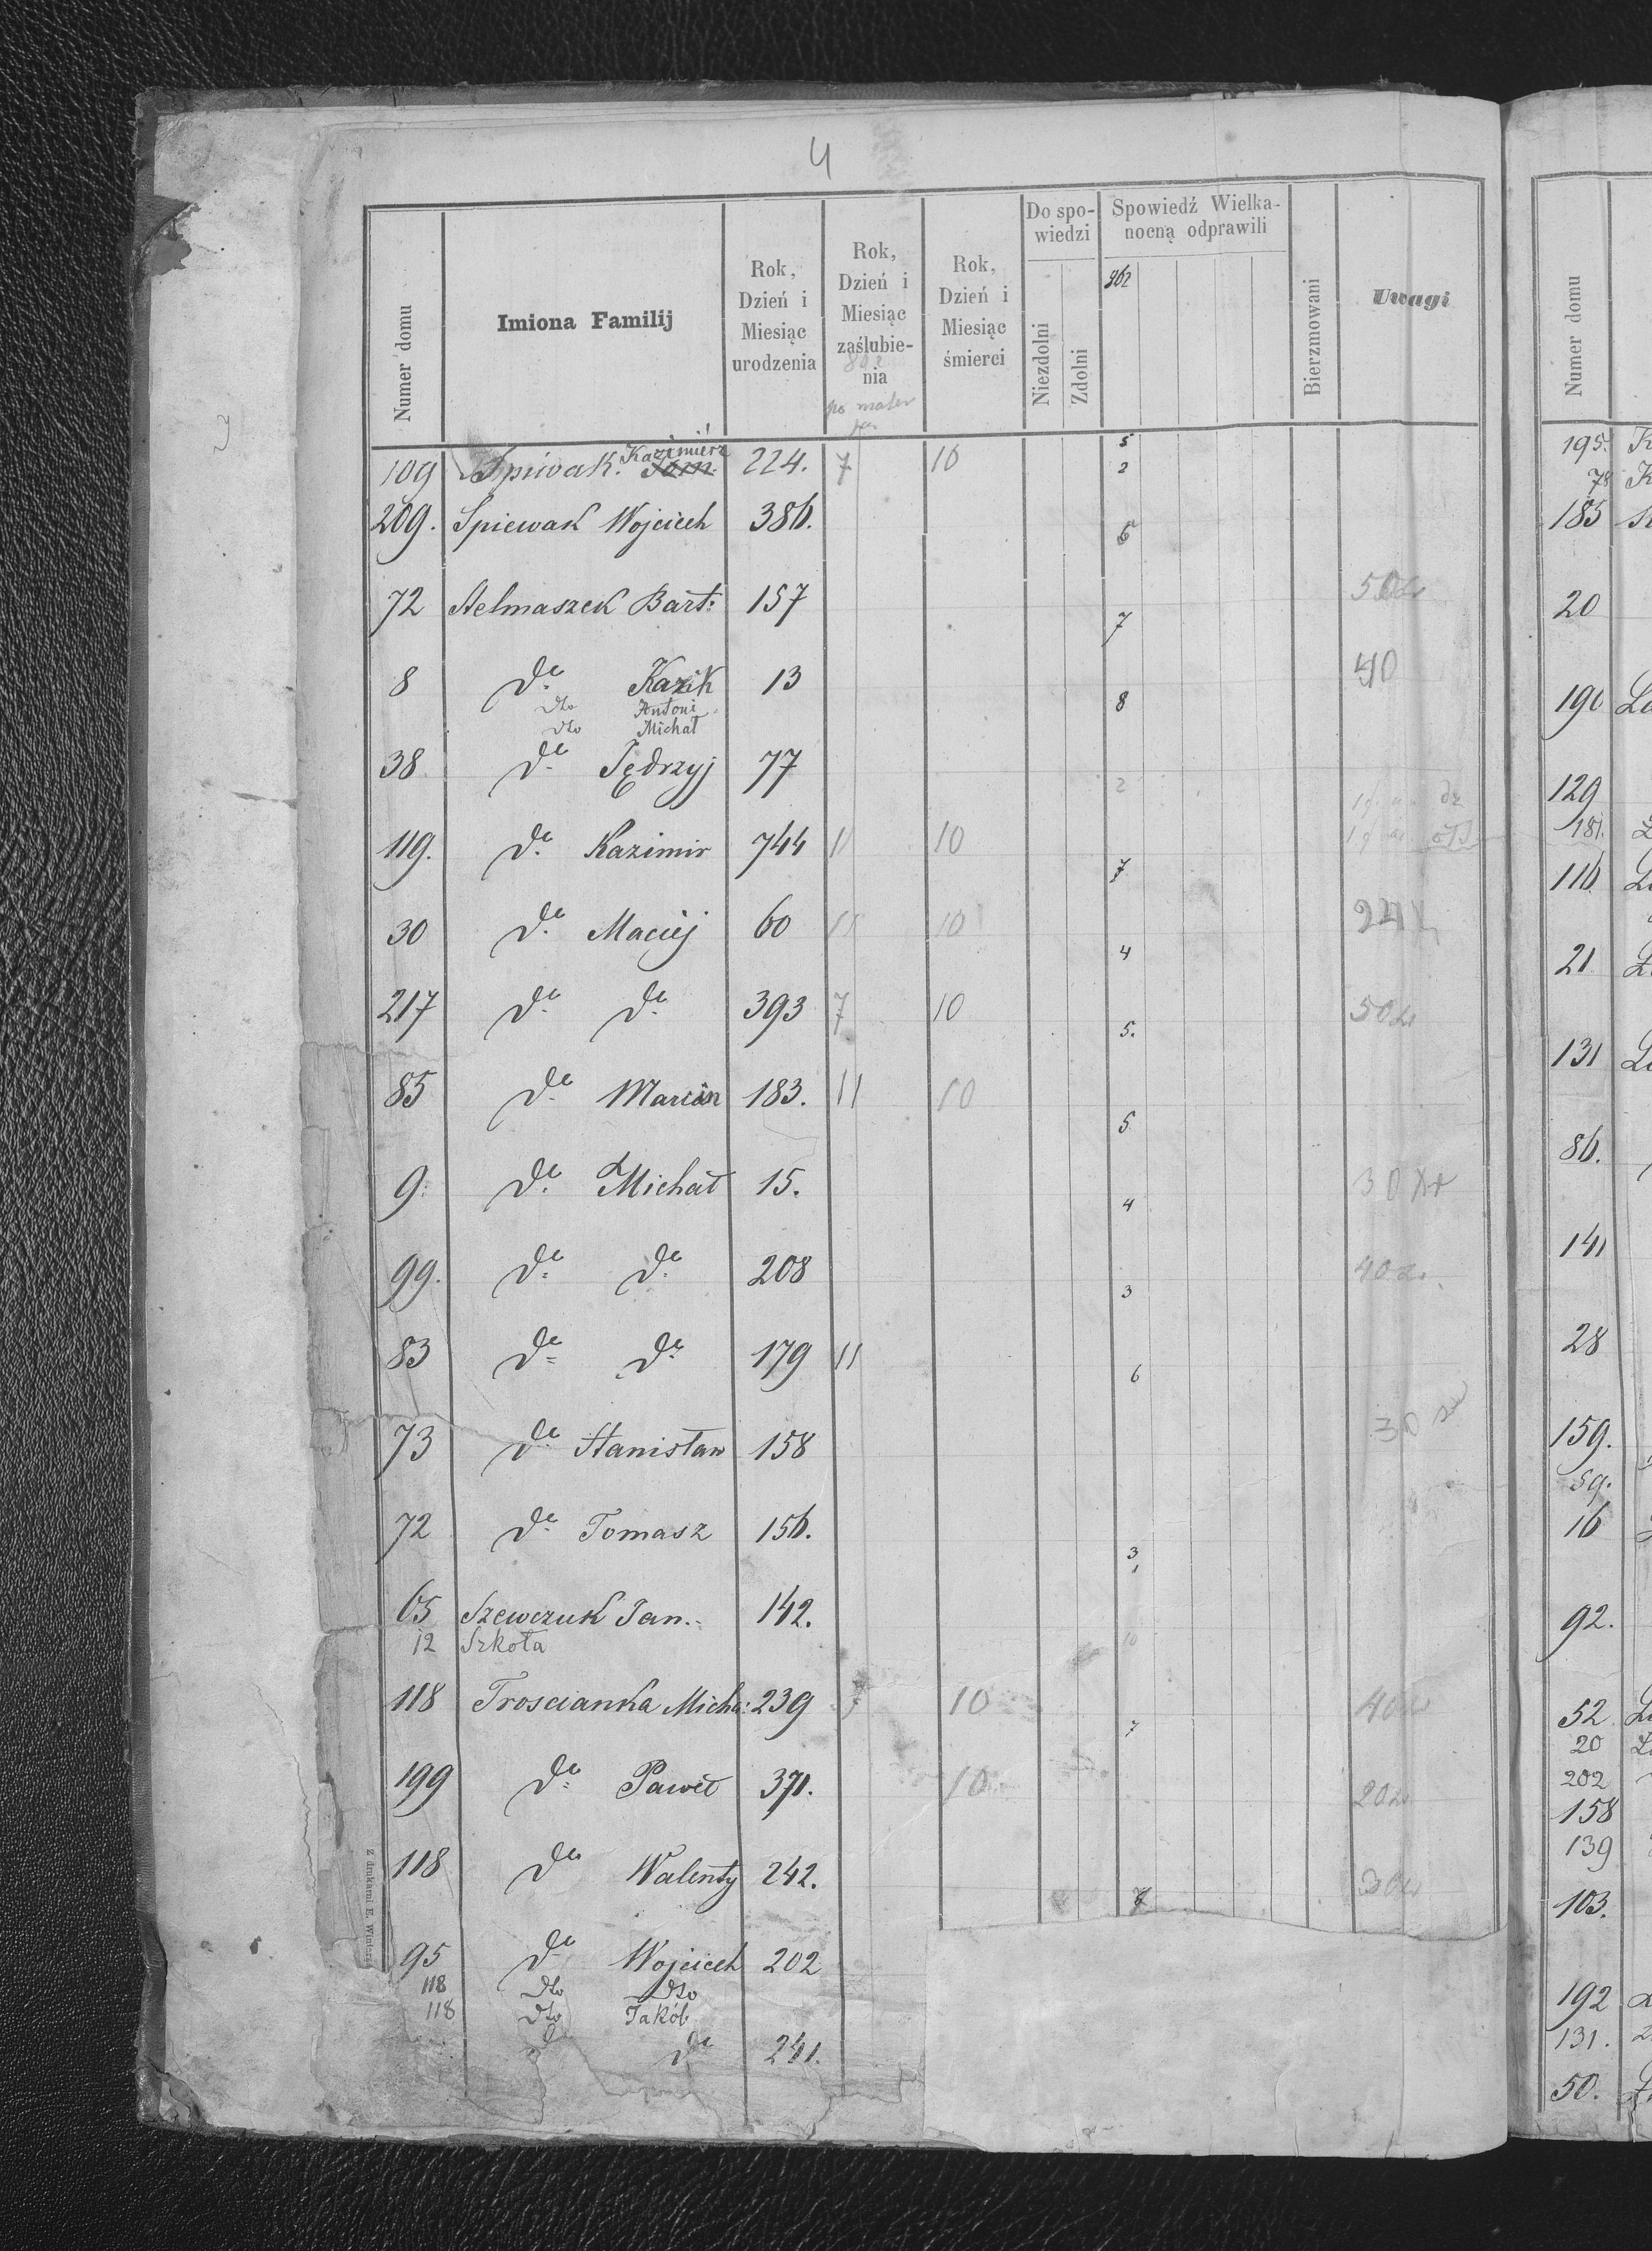 4
Numer domu
Imiona Familij
Rok, Dzień i Miesiąc urodzenia
Rok, Dzień i Miesiąc zaślubienia
Rok, Dzień i Miesiąc śmierci
Do spowiedzi
Niezdolni
Zdolni
Spowiedź Wielkanocną odprawili
Bierzmowani
Uwagi
Kazimierz 5
109 Spiwak. 224. 7 10 2
209. Spiewak Wojciech 386. 6
72 Stelmaszek Bart: 157 7 50
8 dº Kazik 13 8 40
dto Antoni
dto Michał
38 dº Jędrzyj 77 2
119. dº Kazimir 744 11 10 7
30 dº Maciej 60 11 10 4
217 dº dº 393 7 10 5. 50
85 dº Marcin 183. 11 10 5
9. dº Michał 15. 4 30
99. dº dº 208 3 40
83 dº dº 179 11 6
73 dº Stanisław 158 30
72 dº Tomasz 156. 3
65 Szewczuk Jan. 142.
12 Szkoła 10
118 Troscianka Micha: 239 7 10 7 40
199 dº Paweł 371. 10 20
118 dº Walenty 242. 30
95 dº Wojciech 202
118 dto dto
118 dto Jakób
dº dº 241.
Z drukarni E. Winiarza
Numer domu
195.
78
185
20
190
129
181.
116
21
131
86.
141
28
159.
59.
16
92.
52
20
202
158
139
103.
192
131.
50.